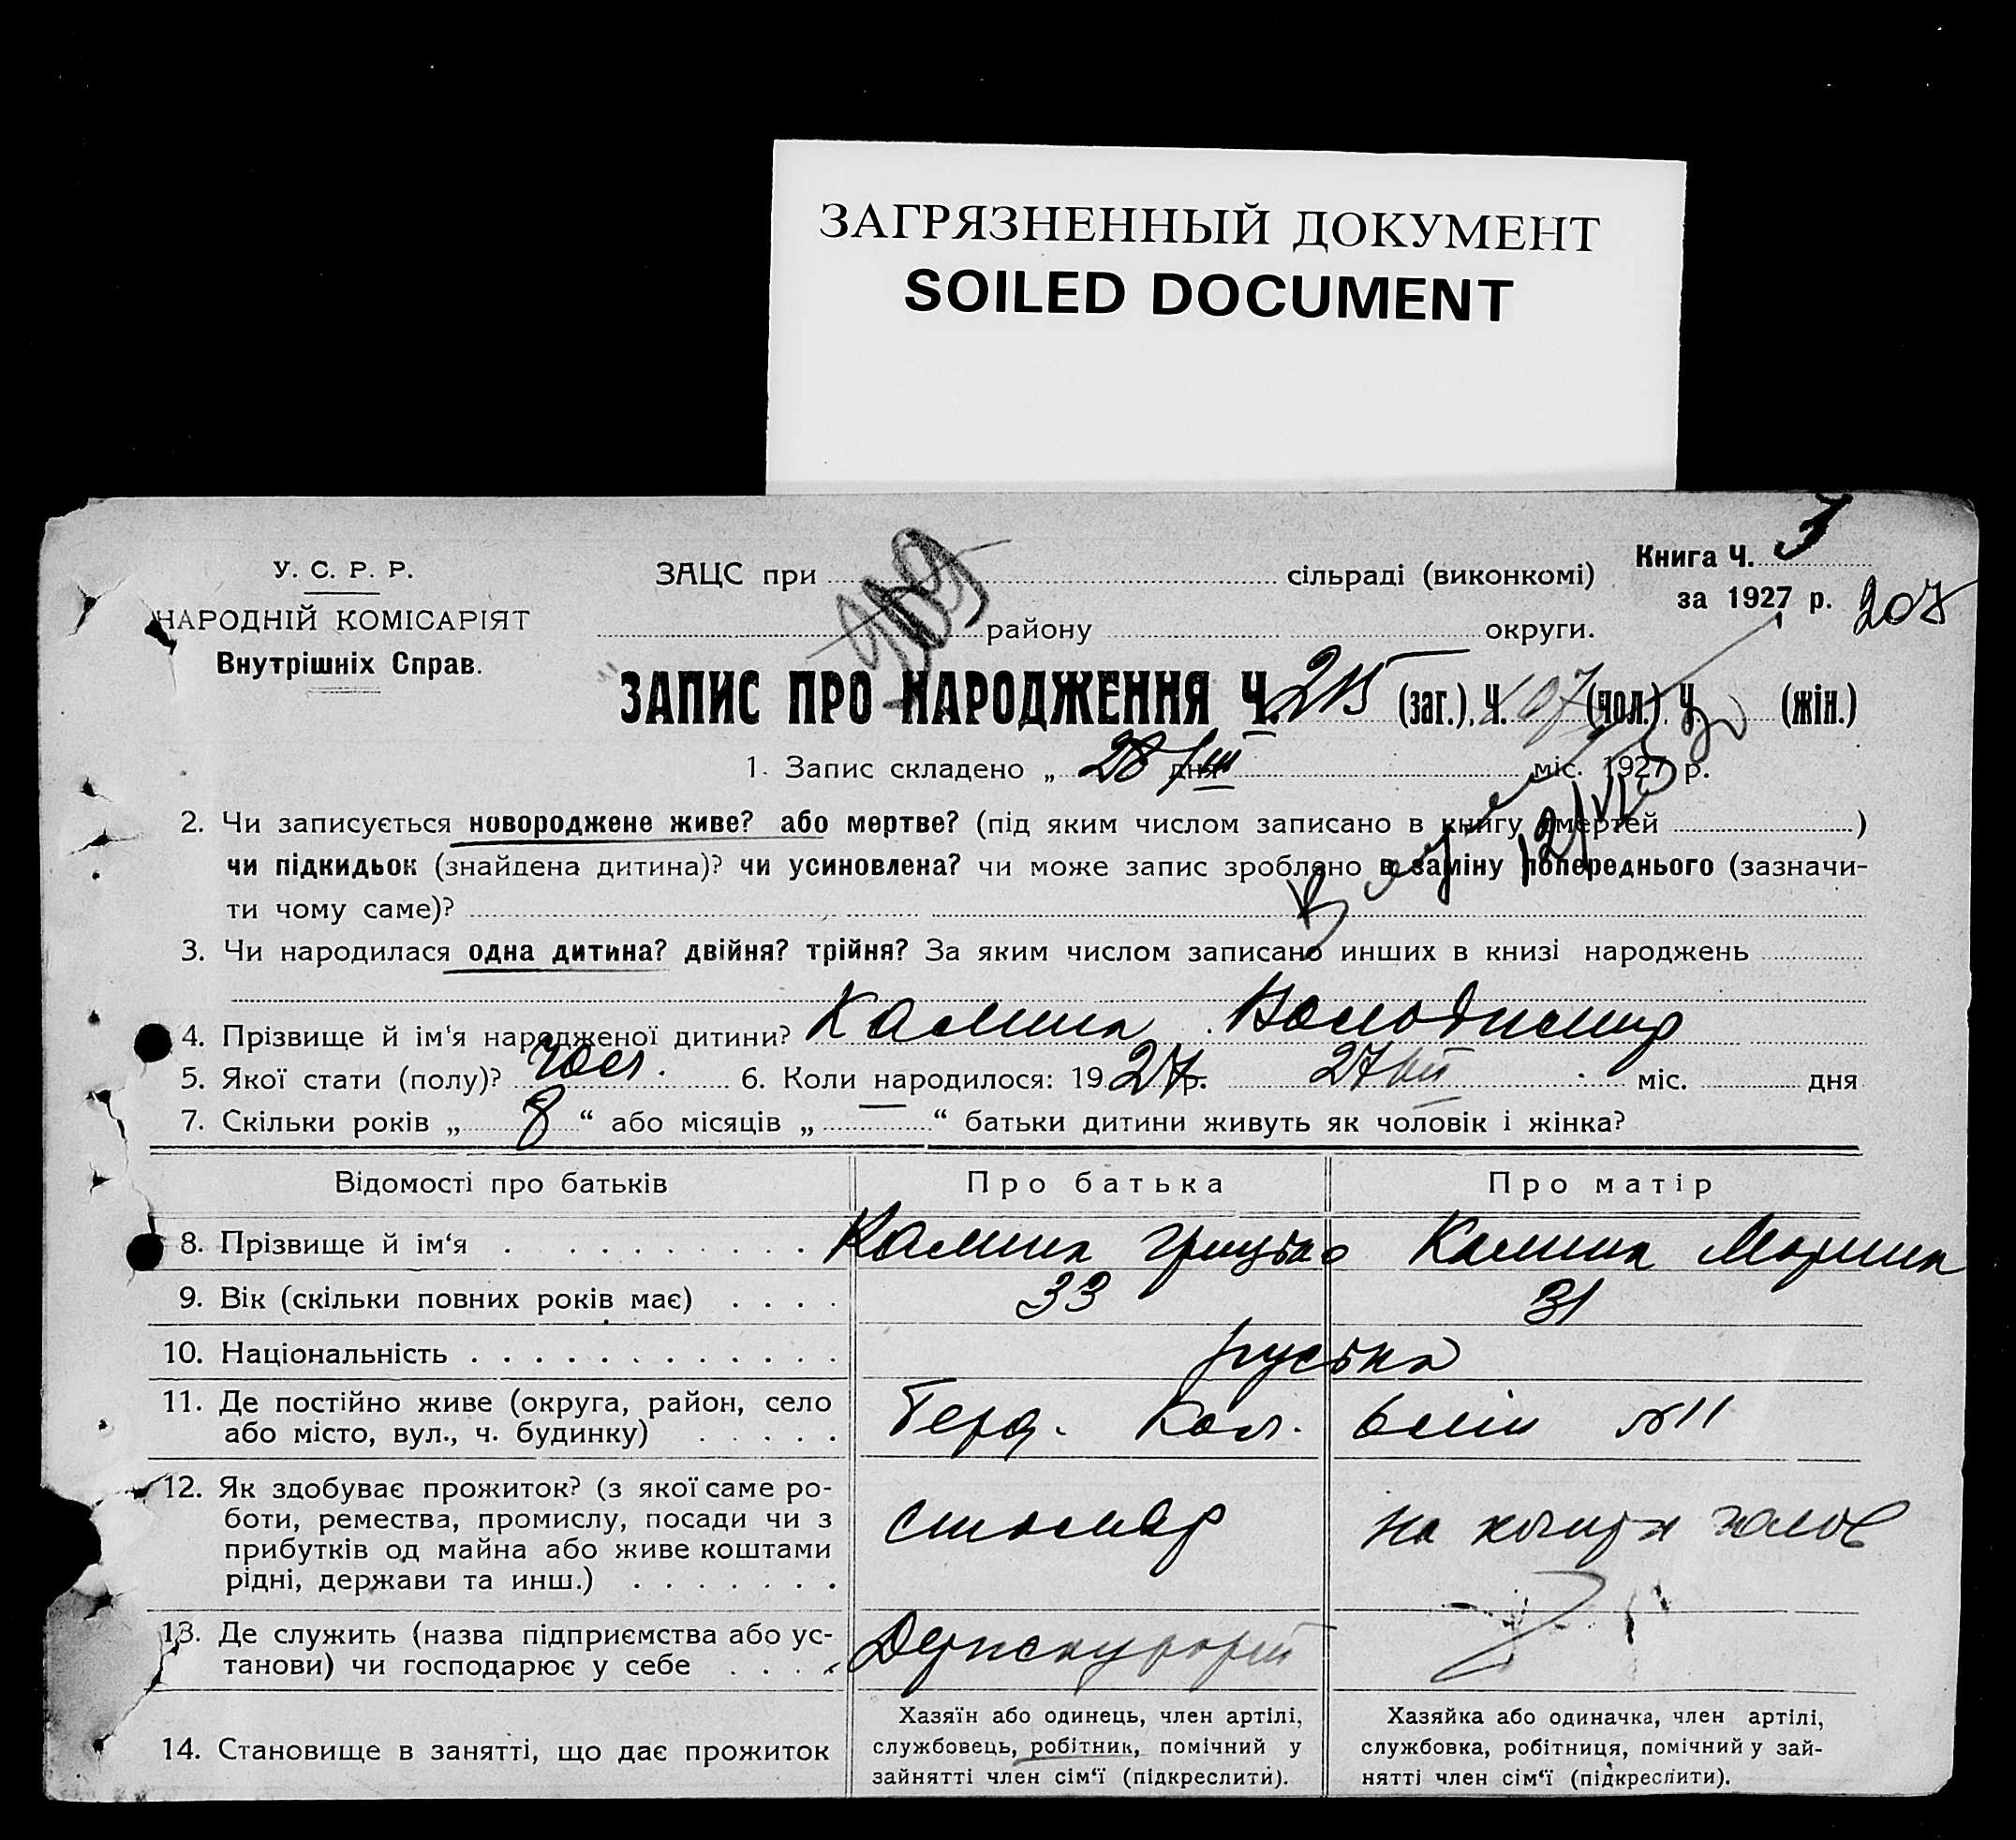 ЗАГРЯЗНЕННЫЙ ДОКУМЕНТ
SOILED DOCUMENT
У. С. Р. Р.
НАРОДНІЙ КОМІСАРІЯТ
Внутрішніх Справ.
ЗАЦС при сільраді (виконкомі)
району округи.
Книга Ч. 3
за 1927 р. 207
ЗАПИС ПРО НАРОДЖЕННЯ Ч. 215 (заг.), Ч. 107 (чол.), Ч. (жін.)
1. Запис складено „ 28/III дня міс. 1927 р.
2. Чи записується новороджене живе? або мертве? (під яким числом записано в книгу смертей )
чи підкидьок (знайдена дитина)? чи усиновлена? чи може запис зроблено в заміну попереднього (зазначи-
ти чому саме)?
3. Чи народилася одна дитина? двійня? трійня? За яким числом записано инших в книзі народжень
4. Прізвище й ім'я народженої дитини? Калина Володимир
5. Якої стати (полу)? чол. 6. Коли народилося: 19 27 р. 27/III міс. дня
7. Скільки років „ 8 “ або місяців „ — “ батьки дитини живуть як чоловік і жінка?
Відомості про батьків Про батька Про матір
8. Прізвище й ім'я Калина Грицько Калина Марина
9. Вік (скільки повних років має) 33 31
10. Національність руська
11. Де постійно живе (округа, район, село
або місто, вул., ч. будинку) Кол. №11
12. Як здобуває прожиток? (з якої саме ро-
боти, ремества, промислу, посади чи з
прибутків од майна або живе коштами
рідні, держави та инш.) столяр на
13. Де служить (назва підприємства або ус-
танови) чи господарює у себе Держкурорт
14. Становище в занятті, що дає прожиток
Хазяїн або одинець, член артілі,
службовець, робітник, помічний у
зайнятті член сім'ї (підкреслити).
Хазяйка або одиначка, член артілі,
службовка, робітниця, помічний у зай-
нятті член сім'ї (підкреслити).